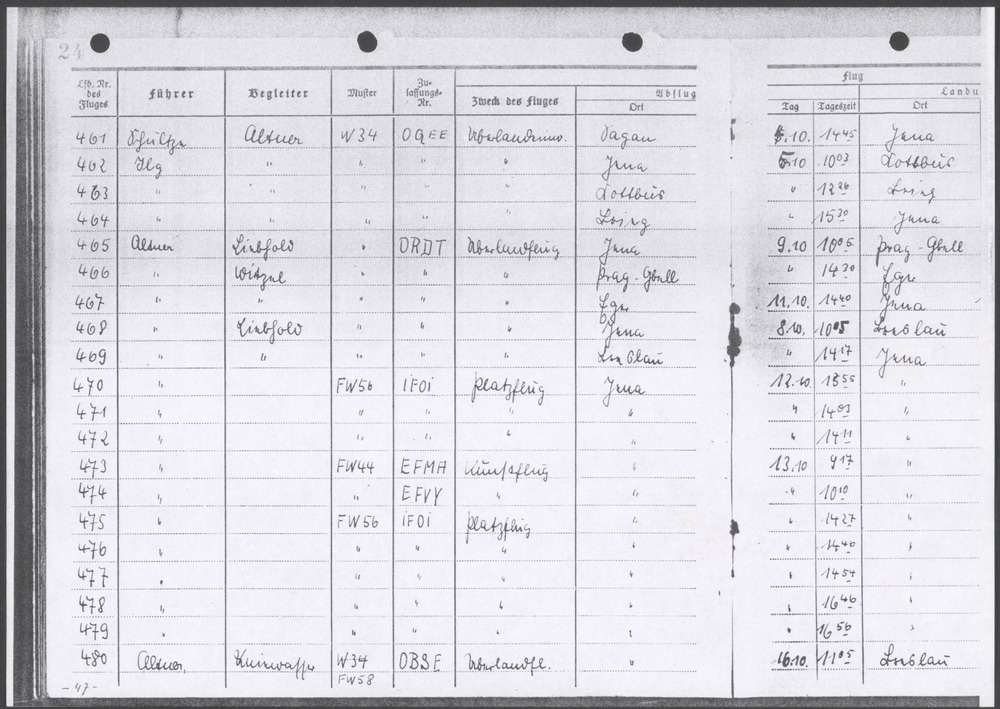 24
Flug
Lfd. Nr. des Fluges Führer Begleiter Muster Zu-lassungs-Nr. Zweck des Fluges Abflug Ort Tag Tageszeit Landu Ort
461 Schultze Altner W34 OGEE Überlandeinw. Sagan 5.10. 14 45 Jena
462 Ilg " " " " Jena 5.10 10 03 Kottbus
463 " " " " " Kottbus " 12 26
464 " " " " " " 15 30 Jena
465 Altner Liebhold " ORDT Überlandflug Jena 9.10 10 05 Prag-Gbell
466 " Witzel " " " Prag-Gbell " 14 30 Eger
467 " " " " " Eger 11.10. 14 40 Jena
468 " Liebhold " " " Jena 8.10. 10 05 Breslau
469 " " " " " Breslau " 14 17 Jena
470 " FW56 IFOI Platzflug Jena 12.10. 13 55 "
471 " " " " " " 14 03 "
472 " " " " " " 14 11 "
473 " FW44 EFMH Kunstflug " 13.10 9 17 "
474 " " EFVY " " " 10 10 "
475 " FW56 IFOI Platzflug " " 14 27 "
476 " " " " " " 14 40 "
477 " " " " " " 14 54 "
478 " " " " " " 16 46 "
479 " " " " " " 16 56 "
480 Altner, W34 OBSE Überlandfl. " 16.10. 11 05 Breslau
FW58
- 47 -